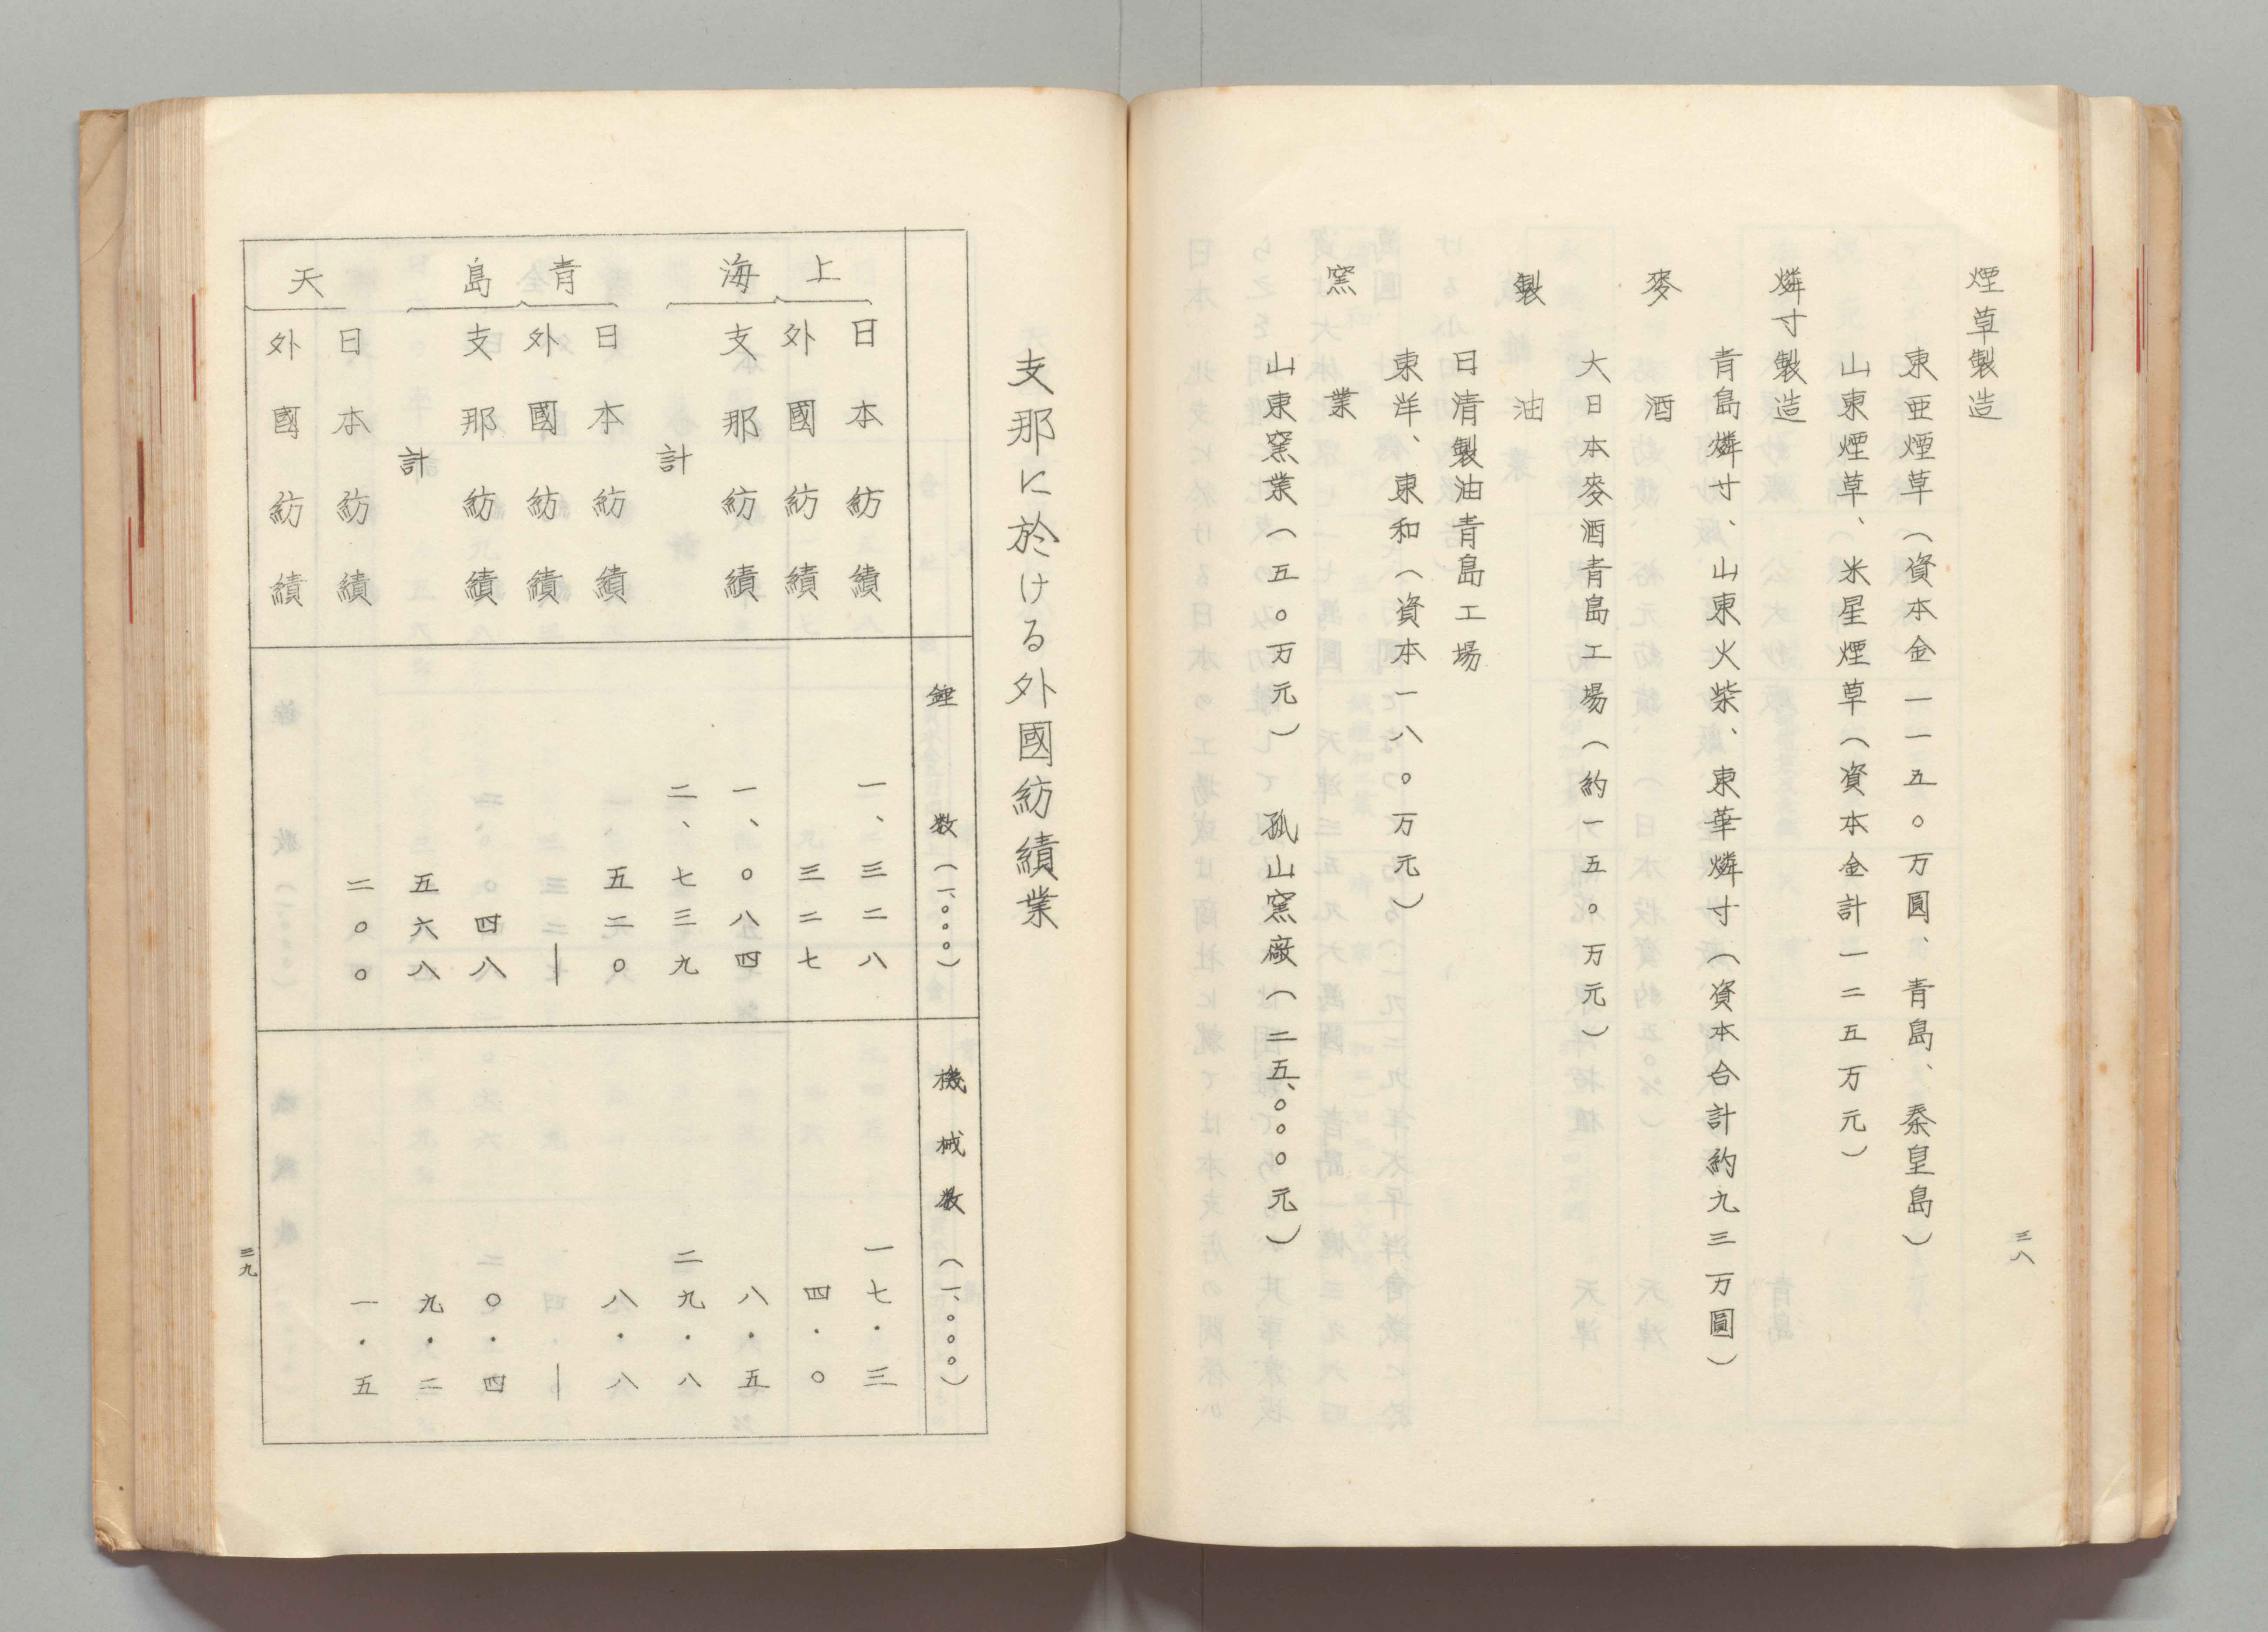 三八
煙草製造
東亜煙草（資本金一一五〇万圓、青島、秦皇島）
山東煙草、米星煙草（資本金計一二五万元）
燐寸製造
青島燐寸、山東火柴、東華燐寸（資本合計約九三万圓）
麥酒
大日本麥酒青島工場（約一五〇万元）
製油
日清製油青島工場
東洋、東和（資本一八〇万元）
窯業
山東窯業（五〇万元）　孤山窯廠（二五、〇〇〇元）
支那に於ける外國紡績業
錘数（一、〇〇〇）　機械数（一、〇〇〇）
上海
日本紡績　一、三二八　一七・三
外國紡績　三二七　四・〇
支那紡績　一、〇八四　八・五
計　二、七三九　二九・八
青島
日本紡績　五二〇　八・八
外國紡績　―　―
支那紡績　四八　〇・四
計　五六八　九・二
天
日本紡績　二〇〇　一・五
外國紡績
三九